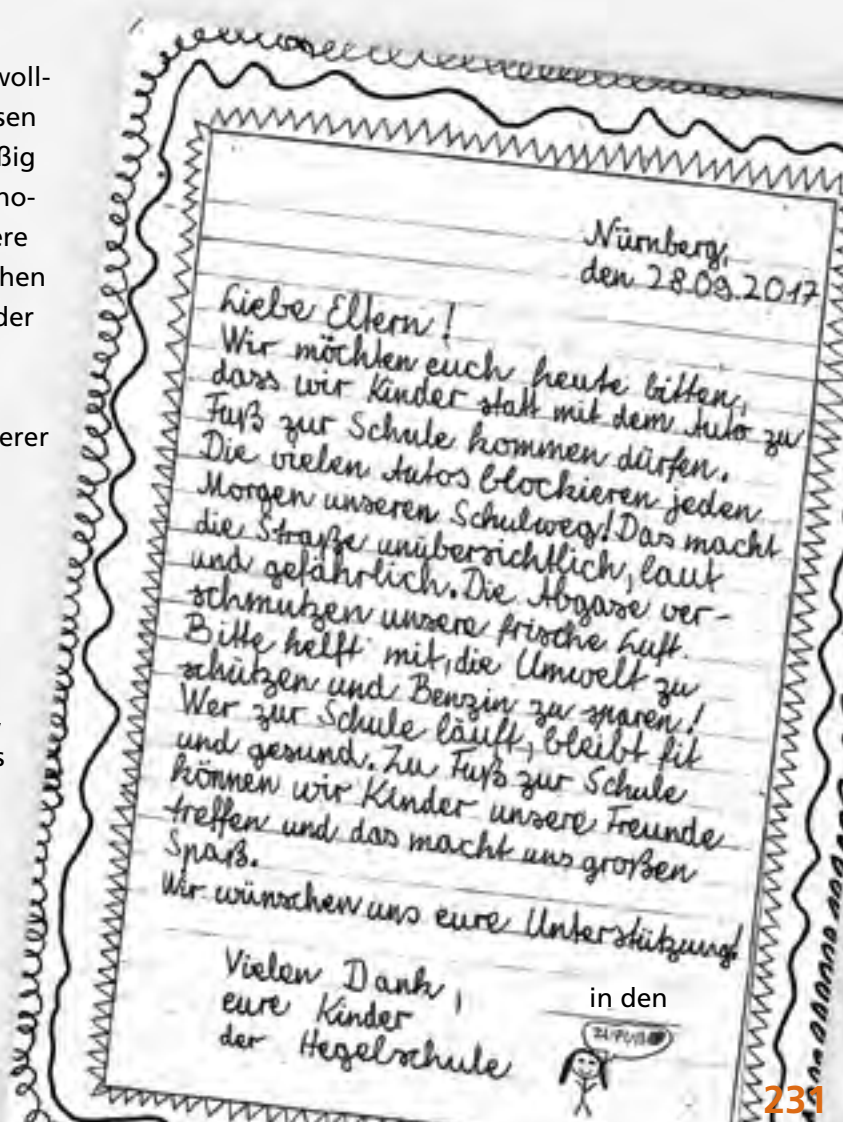 voll-
sen
ßig
no-
ere
hen
der
erer
s
Nürnberg,
den 28.09.2017
Liebe Eltern!
Wir möchten euch heute bitten,
dass wir Kinder statt mit dem Auto zu
Fuß zur Schule kommen dürfen.
Die vielen Autos blockieren jeden
Morgen unseren Schulweg! Das macht
die Straße unübersichtlich, laut
und gefährlich. Die Abgase ver-
schmutzen unsere frische Luft.
Bitte helft mit, die Umwelt zu
schützen und Benzin zu sparen!
Wer zur Schule läuft, bleibt fit
und gesund. Zu Fuß zur Schule
können wir Kinder unsere Freunde
treffen und das macht uns großen
Spaß.
Wir wünschen uns eure Unterstützung!
Vielen Dank,
eure Kinder
der Hegelschule
in den
ZU FUß
231